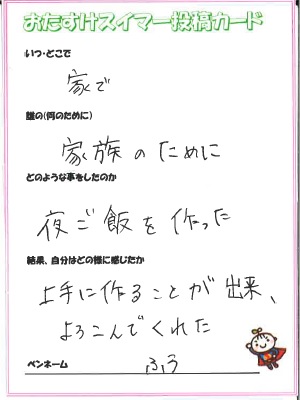 おたすけスイマー投稿カード
いつ・どこで
家で
誰の(何のために)
家族のために
どのような事をしたのか
夜ご飯を作った
結果、自分はどの様に感じたか
上手に作ることが出来、
よろこんでくれた
ペンネーム
ふう